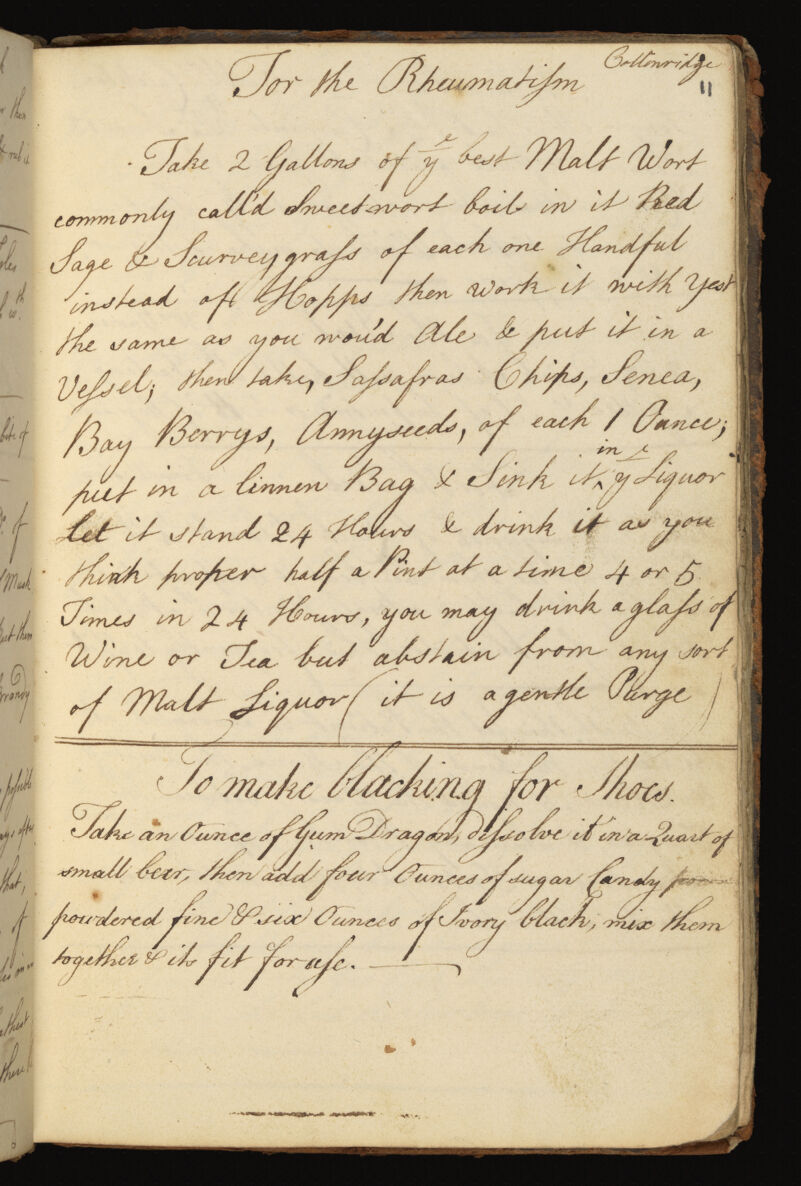 Cottonridge
11
For the Rheumatiſm
Take 2 Gallons of yᵉ best Malt Wort
commonly call'd Sweetwort boil in it Red
Sage & Scurveygraſs of each one Handful
instead of Hopps then work it with Yest
the same as you wou'd Ale & put it in a
Veſsel; then take, Saſsafras Chips, Senea,
Bay Berrys, Annyseeds, of each 1 Ounce;
put in a linnen Bag & Sink it in yᵉ Liquor
let it stand 24 Hours & drink it as you
think proper half a Pint at a time 4 or 5
Times in 24 Hours, you may drink a glaſs of
Wine or Tea but abstain from any sort
of Malt Liquor (it is a gentle Purge)
To make blacking for Shoes.
Take an Ounce of Gum Dragon, diſsolve it in a Quart of
small beer, then add four Ounces of sugar Candy
powdered fine & six Ounces of Ivory black, mix them
together & its fit for uſe.